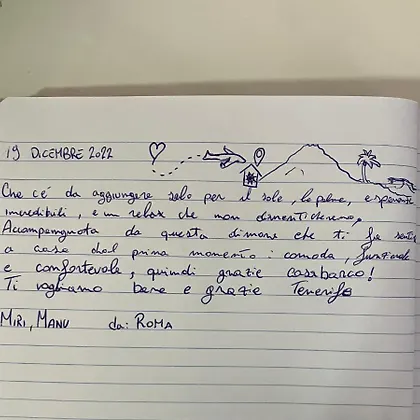 19 DICEMBRE 2022
Che c'é da aggiungere solo per il sole, le palme, esperienze
incredibili, e un relax che non dimenticheremo,
Accompagnata da questa dimora che ti fa sentire
a casa dal primo momento: comoda, funzionale
e confortevole, quindi grazie casabarco!
Ti vogliamo bene e grazie Tenerife
MIRI, MANU da: ROMA